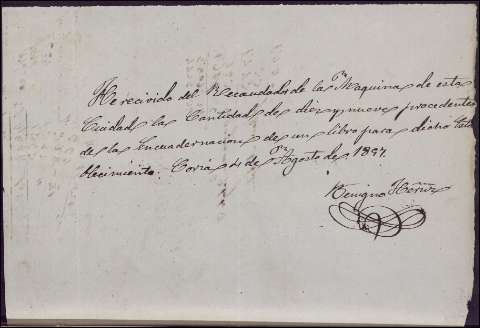 He recivido del Recaudador de la Maquina de esta
Ciudad la Cantidad de diez y nueve procedentes
de la Encuadernacion de un libro para dicho Esta
blecimiento. Coria de Agosto de 1857.
Benigno